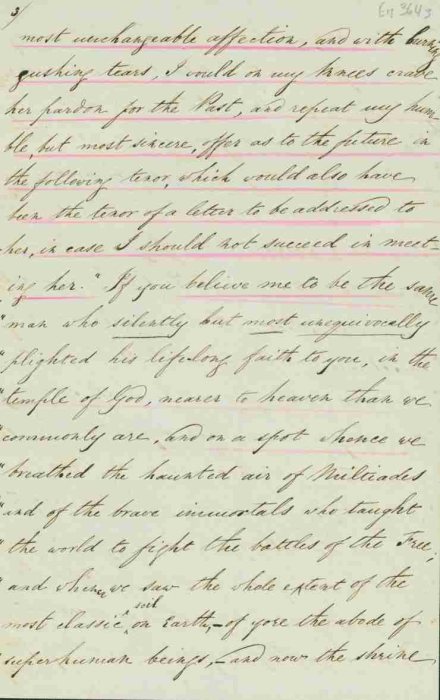 3/
En 364 3
most unchangeable affection, and with burning
gushing tears, I would on my knees crave
her pardon for the Past, and repeat my hum-
ble, but most sincere, offer as to the future in
the following tenor, which would also have
been the tenor of a letter to be addressed to
her, in case I should not succeed in meet-
ing her. "If you believe me to be the same
"man who silently but most unequivocally
"plighted his lifelong faith to you, in the
"temple of God, nearer to heaven than we
"commonly are, and on a spot whence we
"breathed the haunted air of Miltiades
"and of the brave immortals who taught
"the world to fight the battles of the Free,
"and whence we saw the whole extent of the
soil
most classic, on Earth,—of yore the abode of
"superhuman beings,—and now the shrine